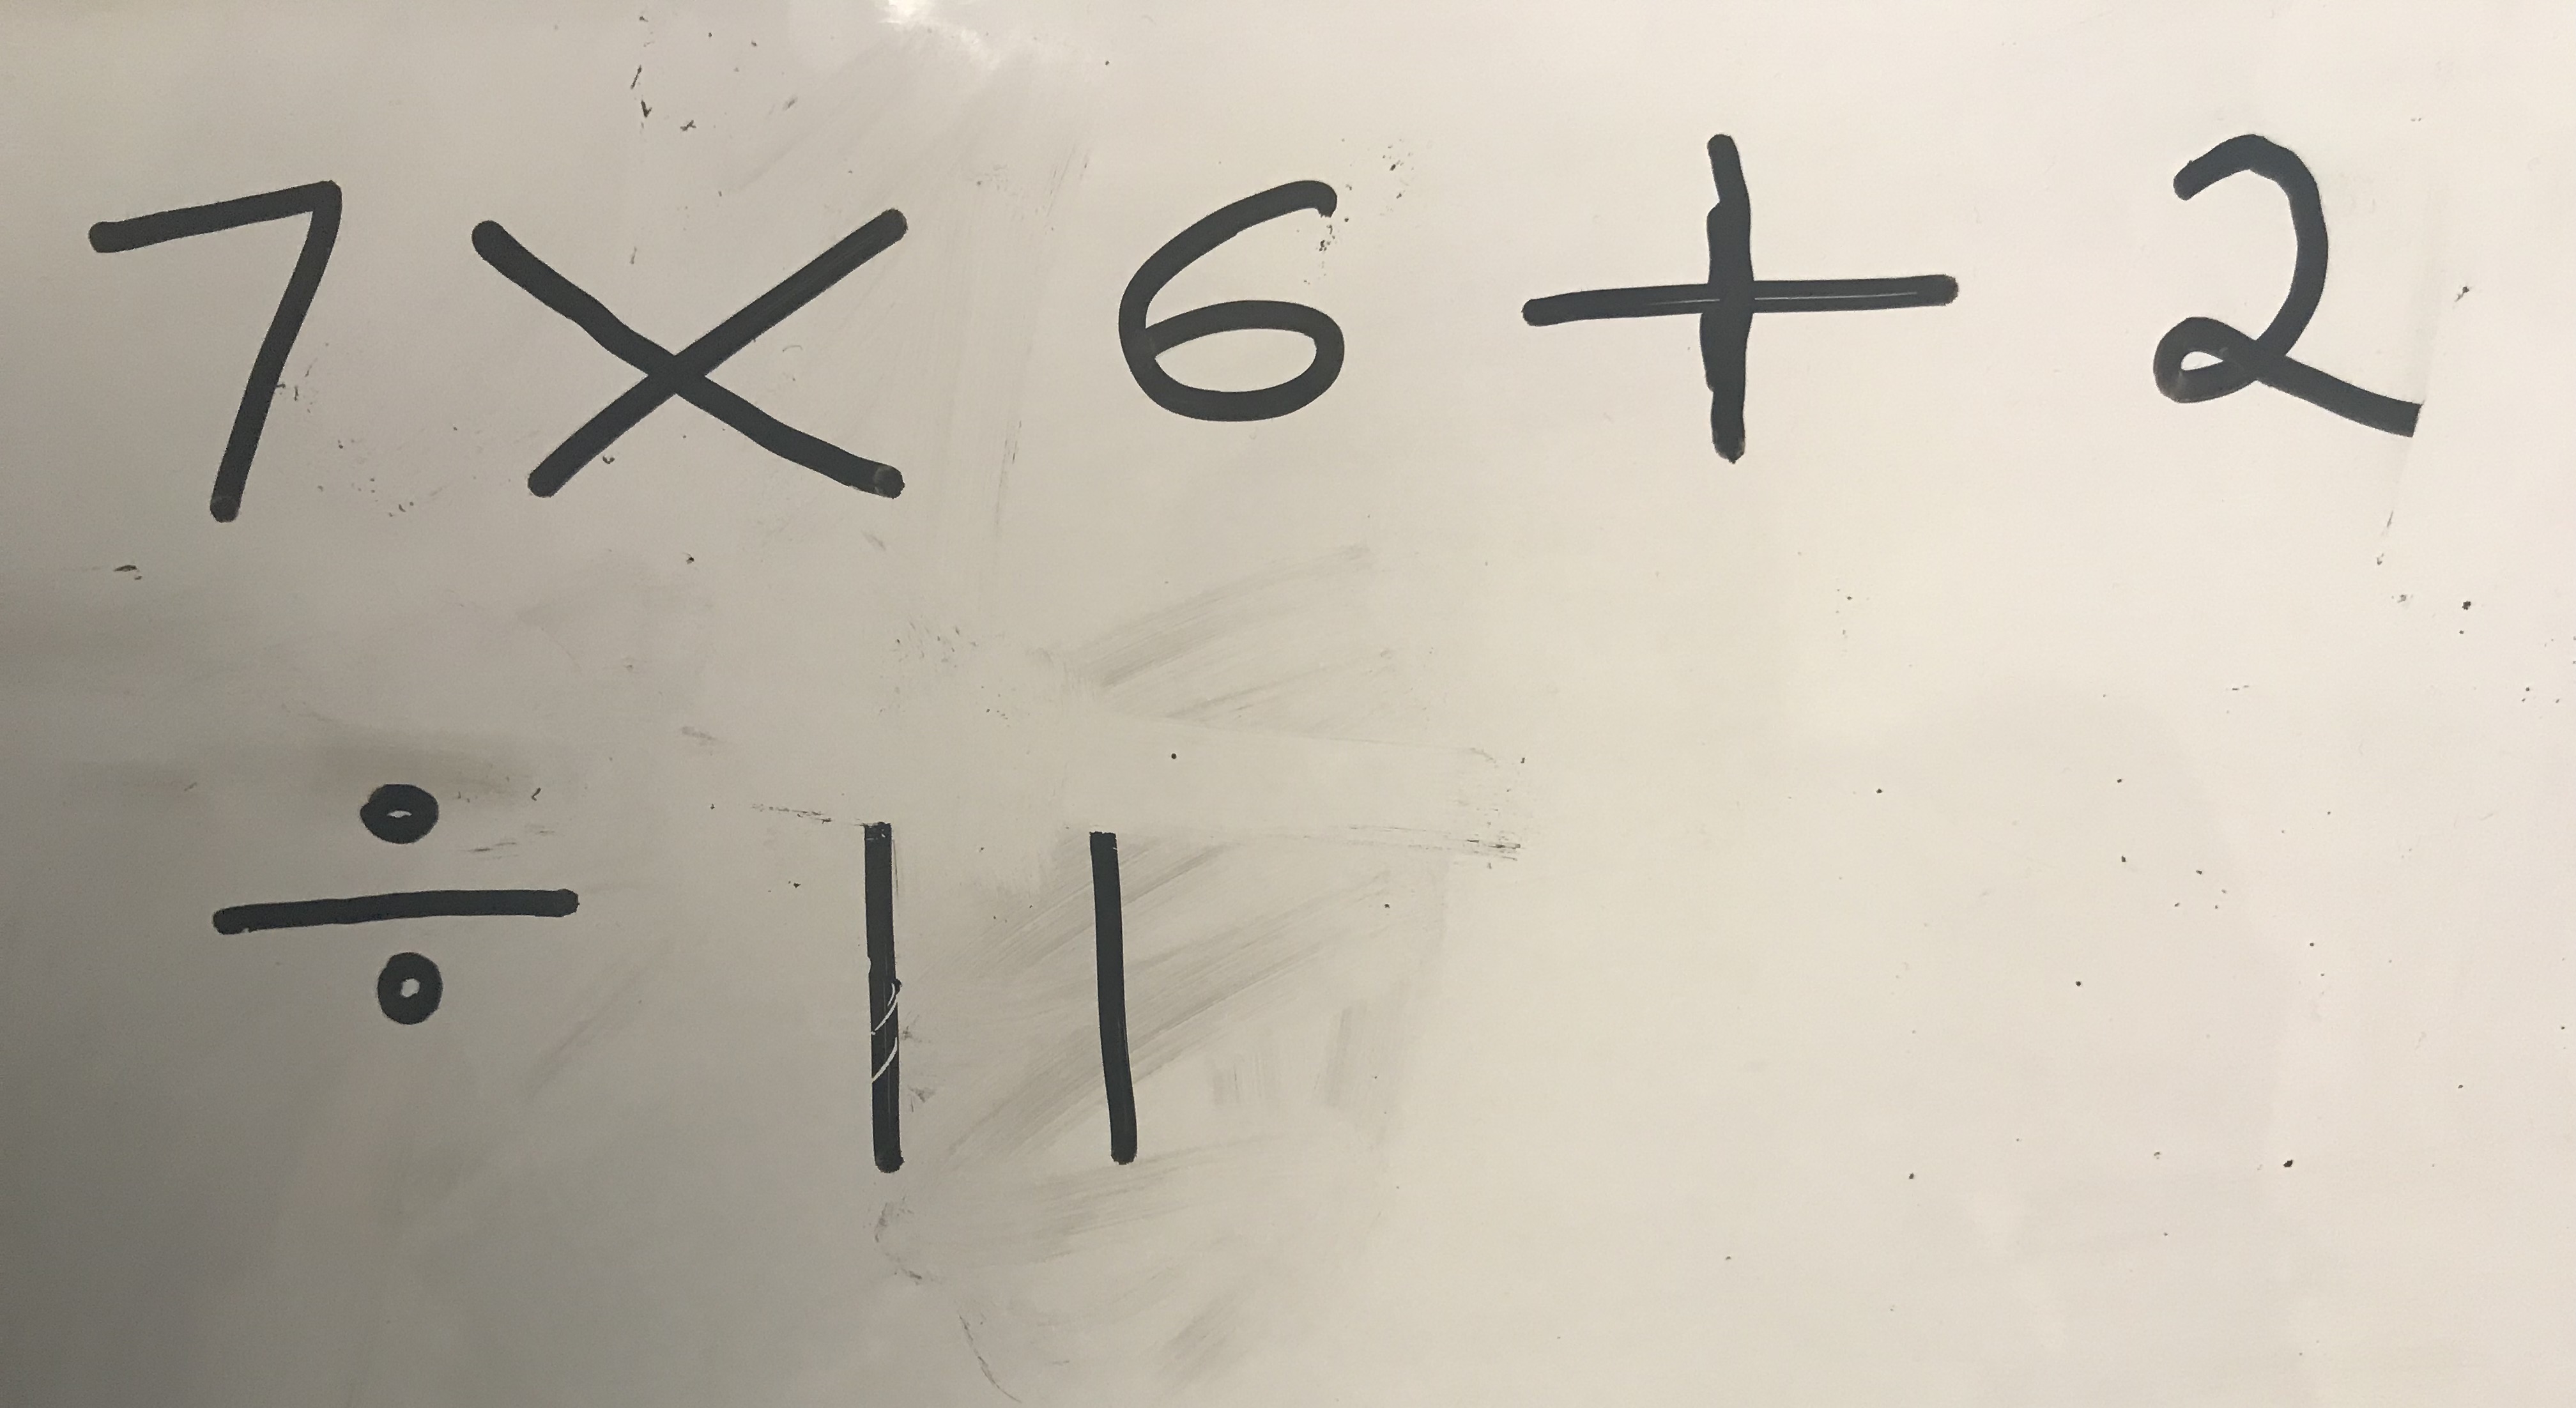 7 × 6 + 2
÷ 11